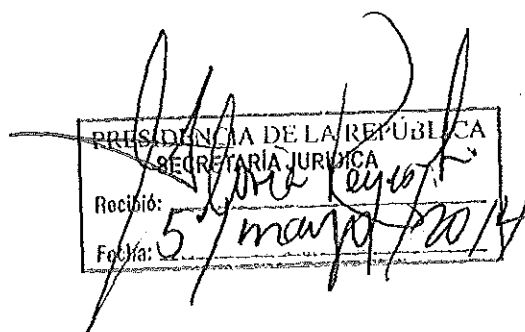 PRESIDENCIA DE LA REPÚBLICA
SECRETARÍA JURÍDICA
Recibió: Reyes
Fecha: 5 mayo 2014